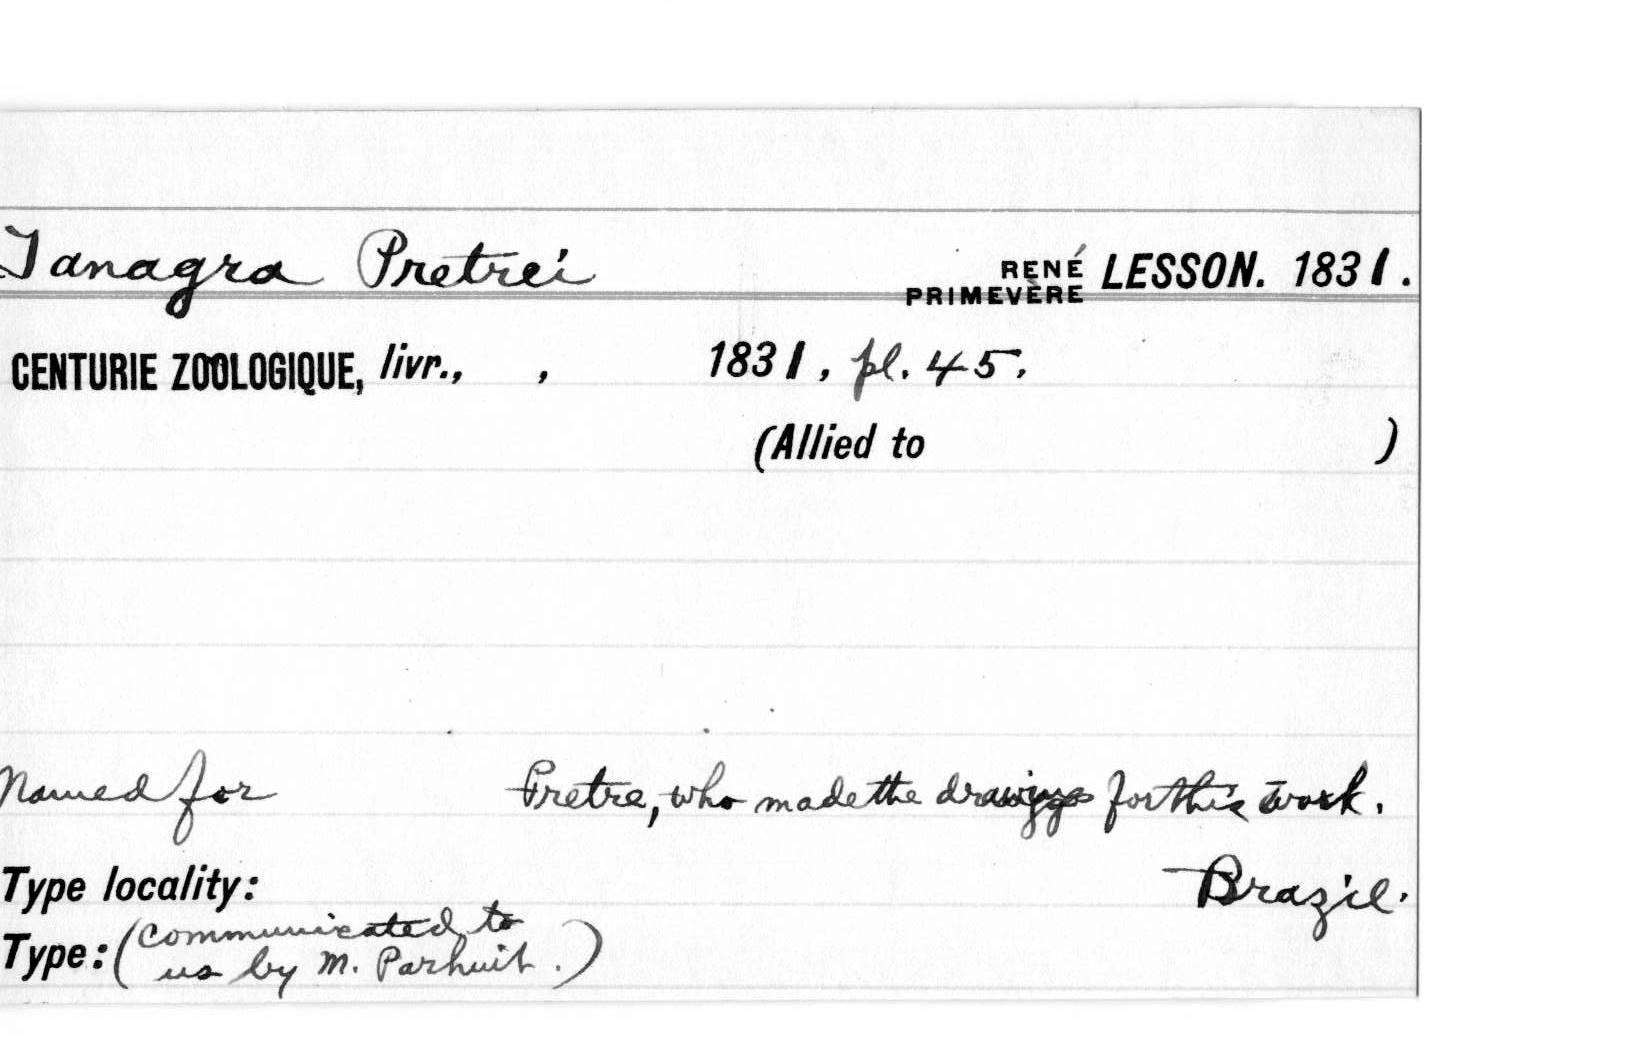 Tanagra Pretrei RENÉ PRIMEVÈRE LESSON. 1831.
CENTURIE ZOOLOGIQUE, livr., , 1831, pl. 45.
(Allied to )
Named for Pretre, who made the drawings for this work.
Type locality: Brazil.
Type: (communicated to
us by M. Parzhuit.)